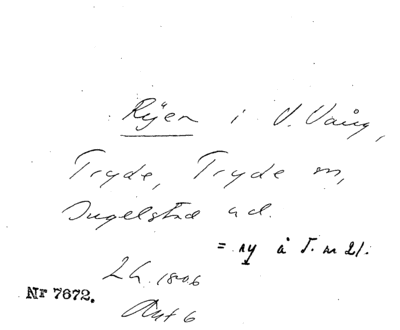 Ryen i V. Vång,
Tryde, Tryde sn,
Ingelstad hd.
= ny å T. m 21.
LH. 1806
Akt 6
Nr 7672.